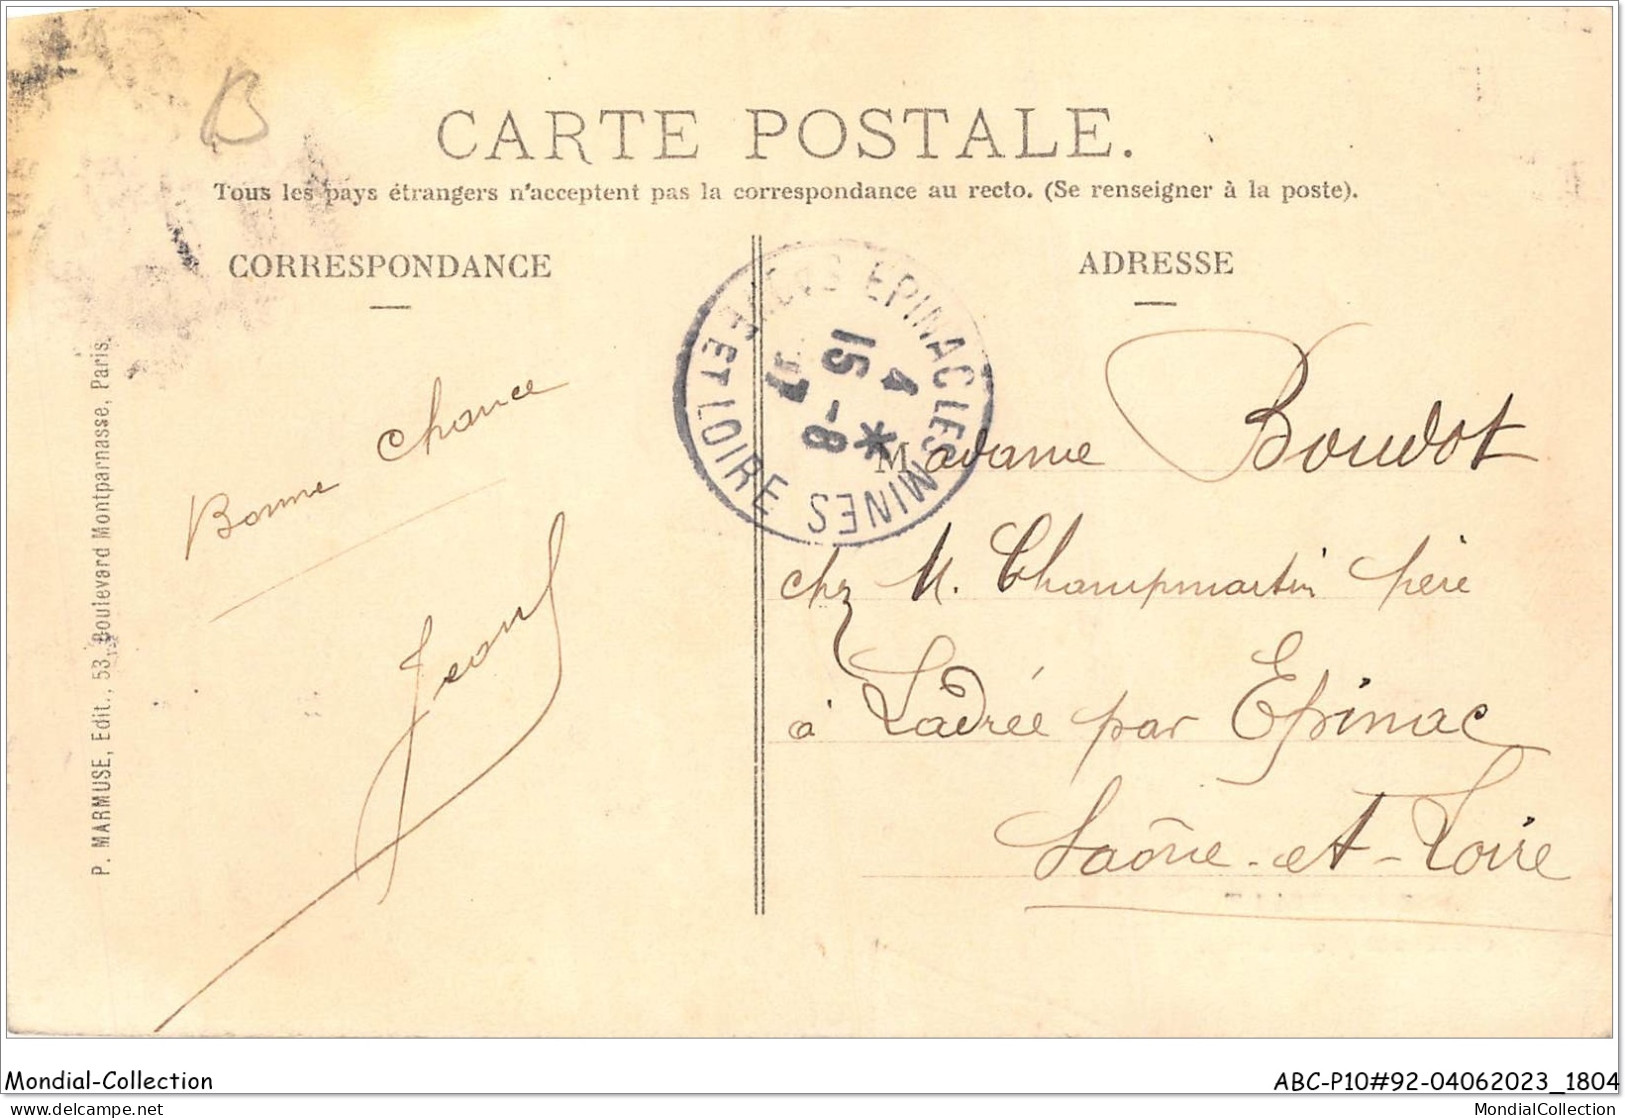 B
CARTE POSTALE.
Tous les pays étrangers n'acceptent pas la correspondance au recto. (Se renseigner à la poste).
CORRESPONDANCE
ADRESSE
Bonne chance
P. MARMUSE, Edit., 53, Boulevard Montparnasse, Paris.
EPINAC LES MINES
ET LOIRE
15 - 8
4
Madame Boudot
chez M. Champmartin père
à Ladrée par Epinac
Saône-et-Loire
Mondial-Collection
ABC-P10#92-04062023_1804
delcampe.net
MondialCollection